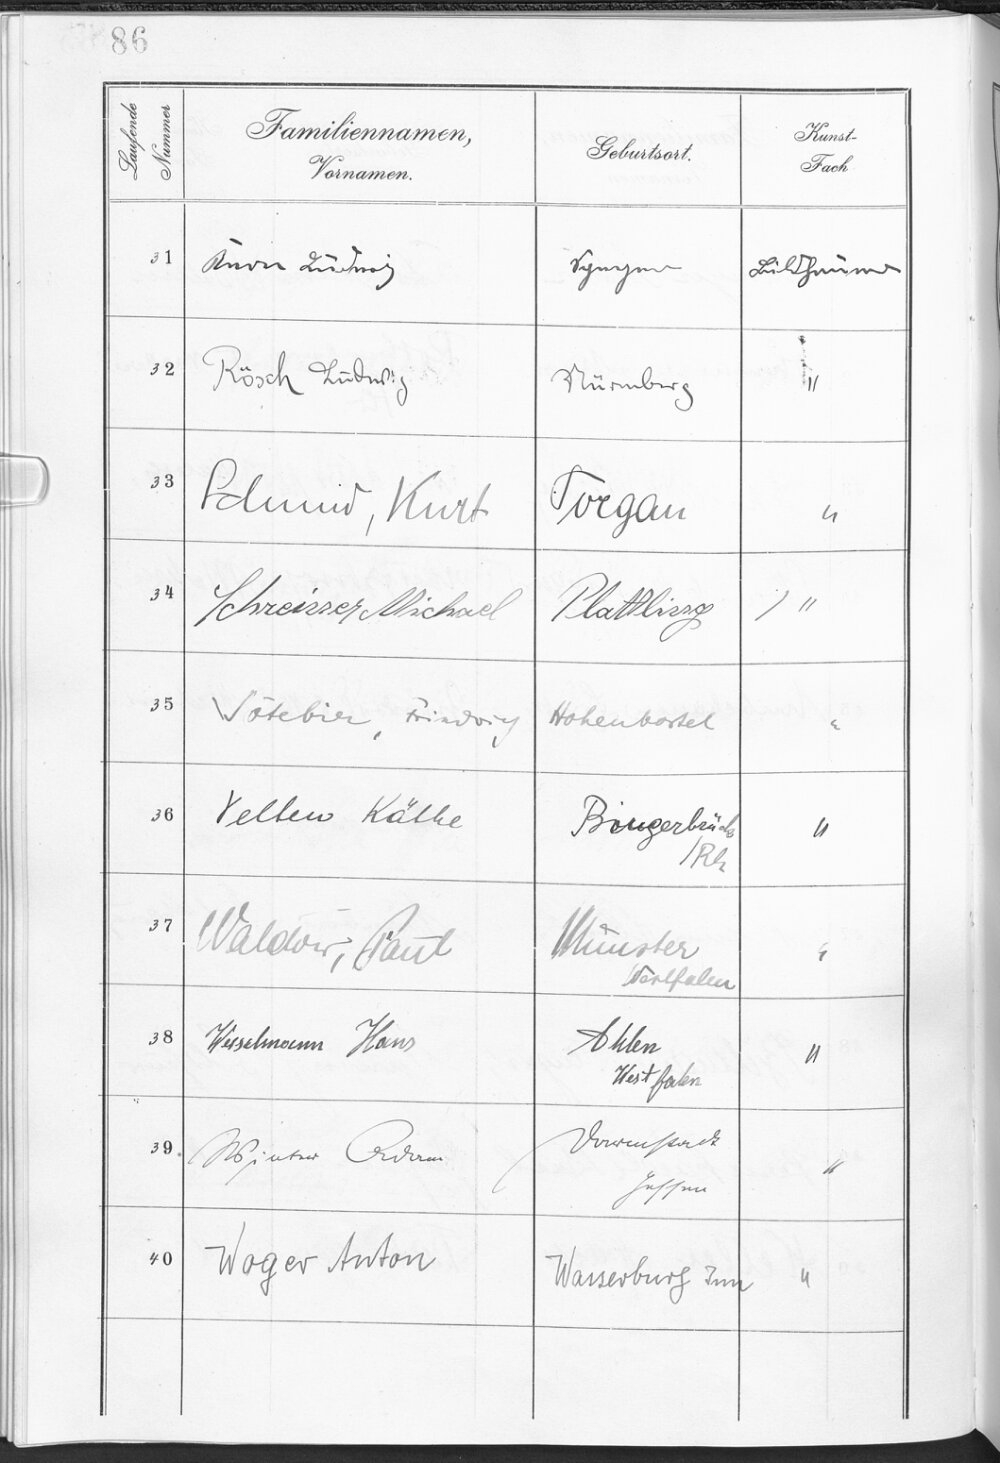 86
Laufende Nummer
Familiennamen,
Vornamen.
Geburtsort.
Kunst-
Fach
31 Ludwig Bildhauer
32 Rösch Ludwig Nürnberg "
33 Schmid, Kurt Torgau "
34 Michael Plattling "
35 Sötebier, Friedrich Hohenbostel "
36 Velten Käthe Bingerbrück "
/Rh
37 Waldow, Paul Münster "
Westfalen
38 Wesselmann Hans Ahlen "
Westfalen
39 Winter Adam Darmstadt "
Hessen
40 Woger Anton Wasserburg Inn "